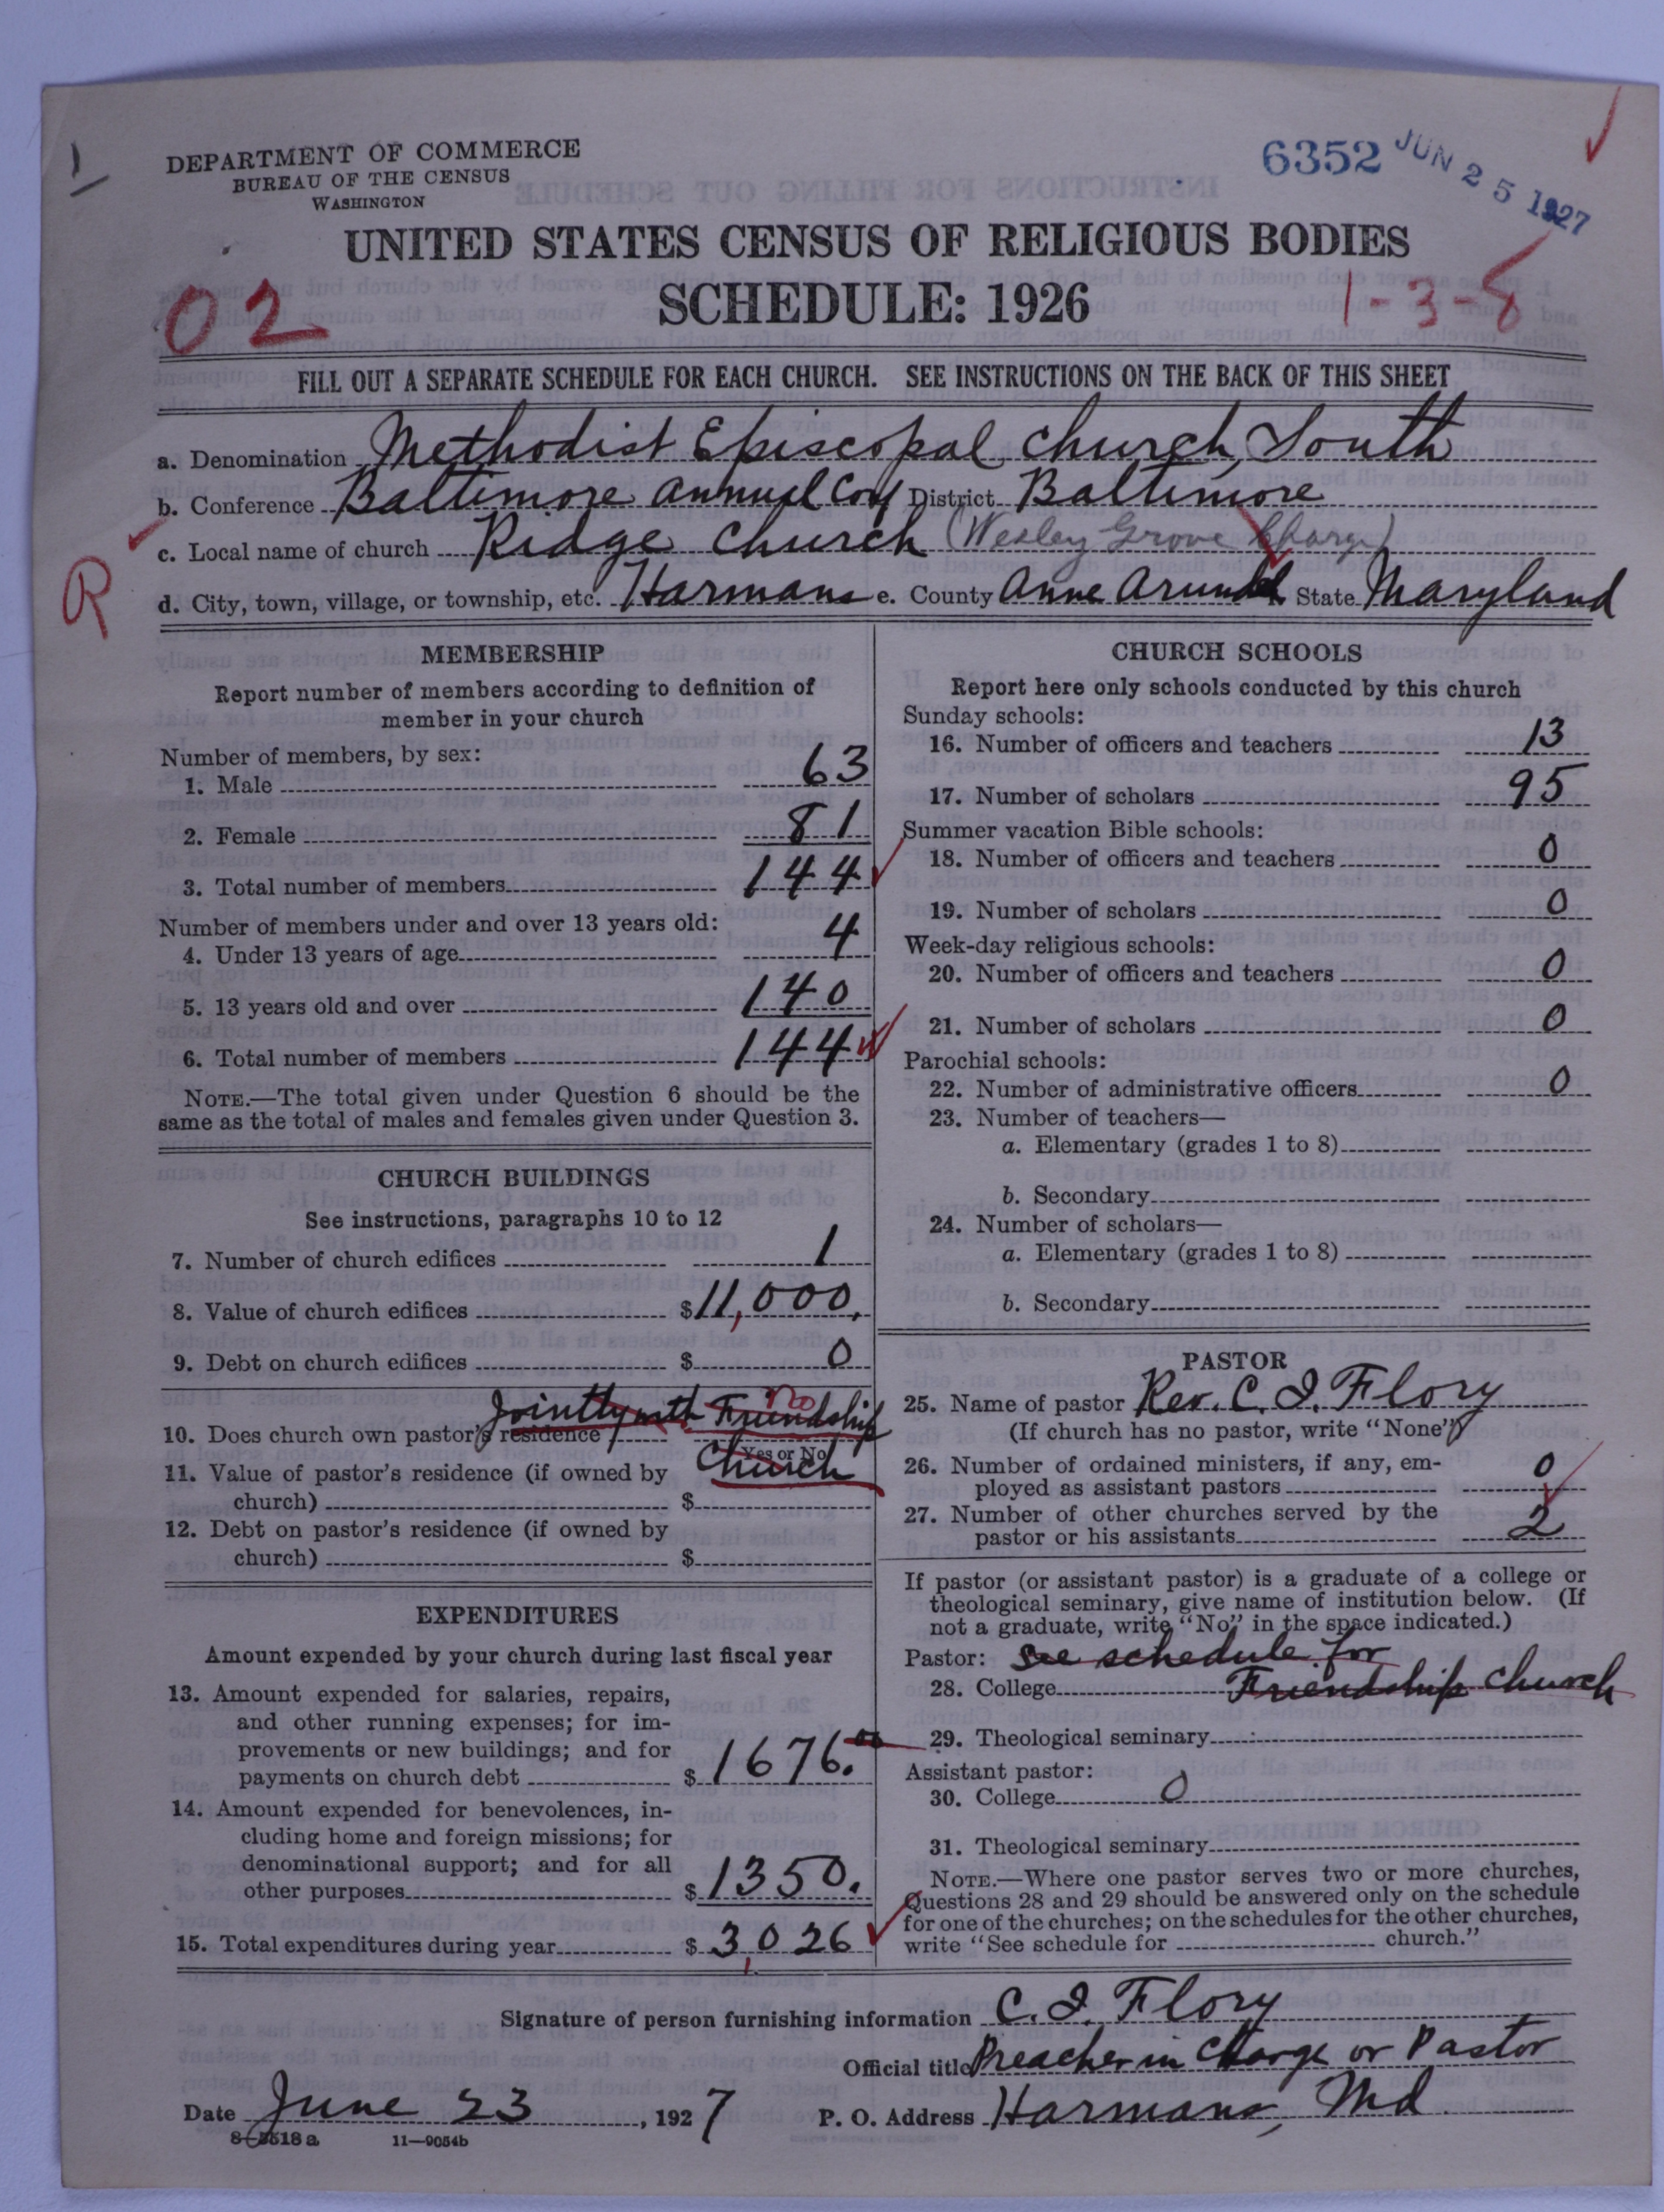 1
DEPARTMENT OF COMMERCE
BUREAU OF THE CENSUS
WASHINGTON
6352 JUN 25 1927
UNITED STATES CENSUS OF RELIGIOUS BODIES
02
SCHEDULE: 1926
1-3-8
FILL OUT A SEPARATE SCHEDULE FOR EACH CHURCH. SEE INSTRUCTIONS ON THE BACK OF THIS SHEET
a. Denomination Methodist Episcopal Church, South
b. Conference Baltimore Annual Conf District Baltimore
c. Local name of church Ridge Church (Wesley Grove Charge)
R
d. City, town, village, or township, etc. Harmans e. County Anne Arundel f. State Maryland
MEMBERSHIP
Report number of members according to definition of
member in your church
Number of members, by sex:
1. Male 63
2. Female 81
3. Total number of members 144
Number of members under and over 13 years old:
4. Under 13 years of age 4
5. 13 years old and over 140
6. Total number of members 144
NOTE.—The total given under Question 6 should be the
same as the total of males and females given under Question 3.
CHURCH BUILDINGS
See instructions, paragraphs 10 to 12
7. Number of church edifices 1
8. Value of church edifices $11,000.
9. Debt on church edifices $ 0
Jointly with Friendship no
10. Does church own pastor's residence?
Yes or No
Church
11. Value of pastor's residence (if owned by
church) $
12. Debt on pastor's residence (if owned by
church) $
EXPENDITURES
Amount expended by your church during last fiscal year
13. Amount expended for salaries, repairs,
and other running expenses; for im-
provements or new buildings; and for
payments on church debt $ 1676.00
14. Amount expended for benevolences, in-
cluding home and foreign missions; for
denominational support; and for all
other purposes $ 1350.
15. Total expenditures during year $ 3,026
CHURCH SCHOOLS
Report here only schools conducted by this church
Sunday schools:
16. Number of officers and teachers 13
17. Number of scholars 95
Summer vacation Bible schools:
18. Number of officers and teachers 0
19. Number of scholars 0
Week-day religious schools:
20. Number of officers and teachers 0
21. Number of scholars 0
Parochial schools:
22. Number of administrative officers 0
23. Number of teachers—
a. Elementary (grades 1 to 8)
b. Secondary
24. Number of scholars—
a. Elementary (grades 1 to 8)
b. Secondary
PASTOR
25. Name of pastor Rev. C. I. Flory
(If church has no pastor, write "None")
26. Number of ordained ministers, if any, em-
ployed as assistant pastors 0
27. Number of other churches served by the
pastor or his assistants 2
If pastor (or assistant pastor) is a graduate of a college or
theological seminary, give name of institution below. (If
not a graduate, write "No" in the space indicated.)
Pastor: See schedule for
28. College Friendship Church
29. Theological seminary
Assistant pastor:
30. College 0
31. Theological seminary
NOTE.—Where one pastor serves two or more churches,
Questions 28 and 29 should be answered only on the schedule
for one of the churches; on the schedules for the other churches,
write "See schedule for church."
Signature of person furnishing information C. I. Flory
Official title Preacher in Charge or Pastor
Date June 23, 1927 P. O. Address Harmans, Md.
8—5518 a 11—9054b